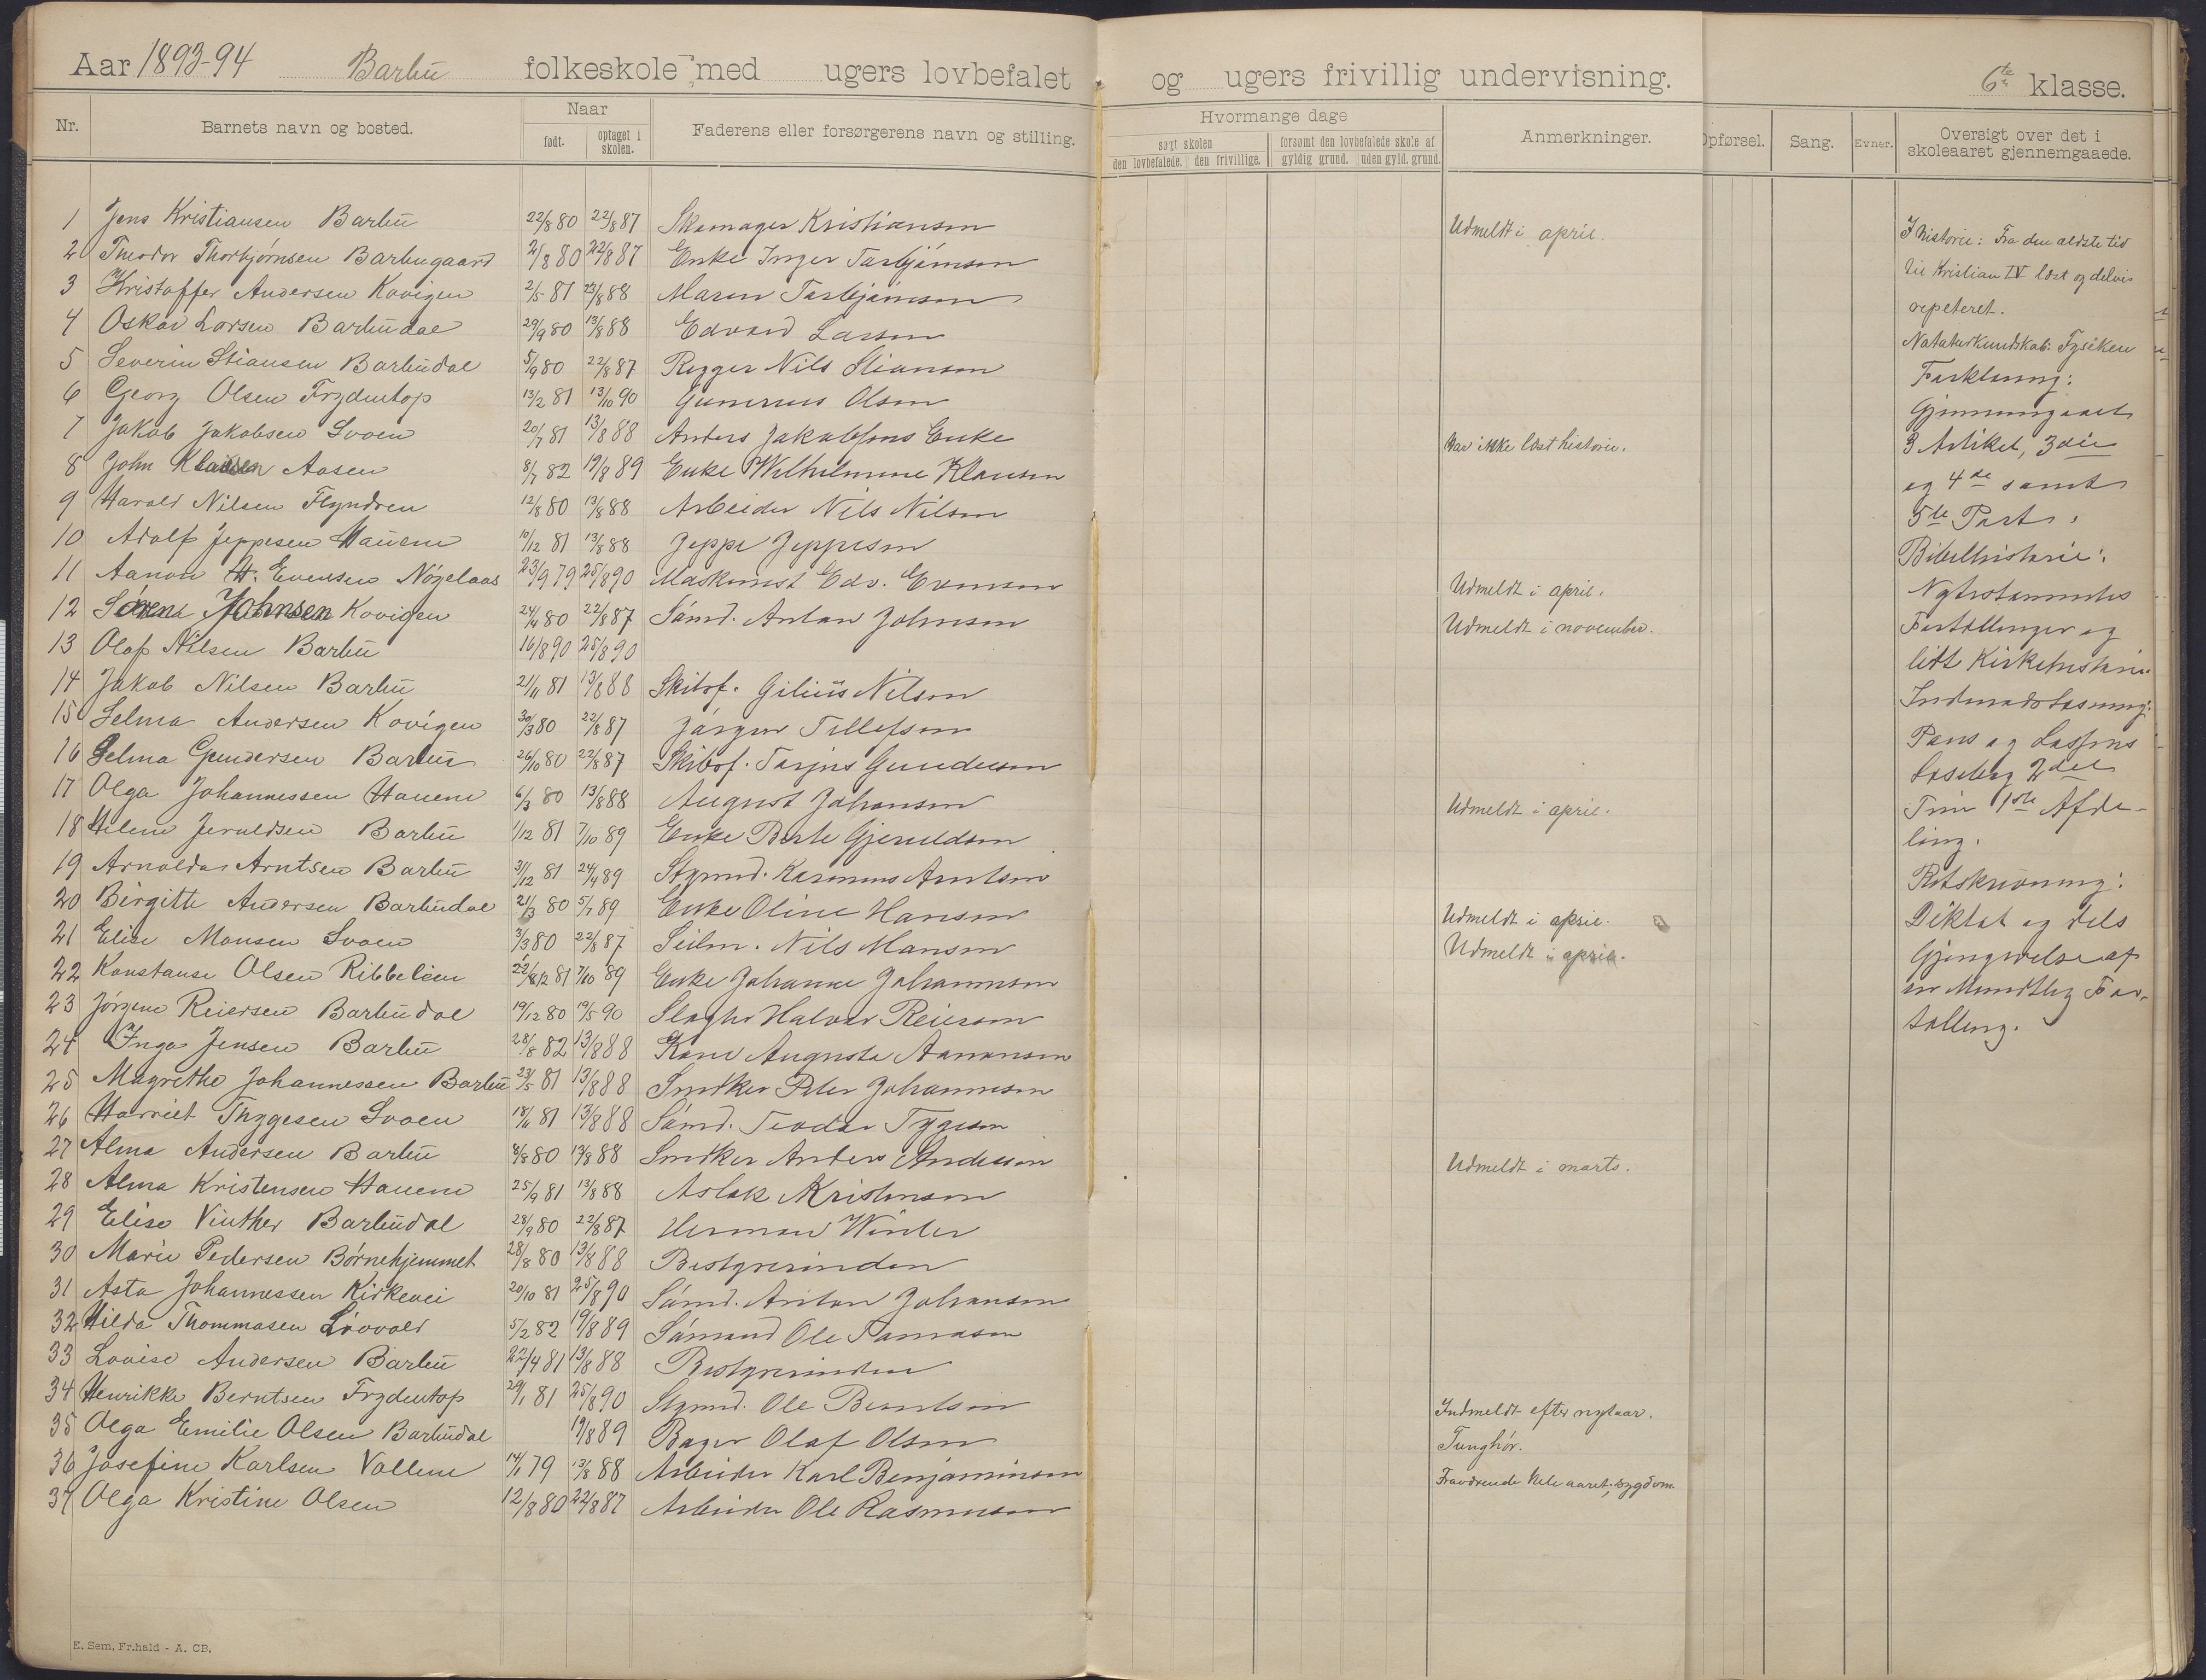 Aar 1893-94 Barbu folkeskole med ugers lovbefalet og ugers frivillig undervisning. 6te klasse.
Nr. Barnets navn og bosted. Naar født. optaget i skolen. Faderens eller forsørgerens navn og stilling. Hvormange dage søgt skolen den lovbefalede. den frivillige. forsømt den lovbefalede skole af gyldig grund. uden gyld. grund. Anmerkninger. Opførsel. Sang. Evner. Oversigt over det i skoleaaret gjennemgaaede.
1 Jens Kristiansen Barbu 22/8 80 22/8 87 Skomager Kristiansen Udmeldt i april.
2 Theodor Thorbjørnsen Barbugaard 2/8 80 22/8 87 Enke Inger Torbjørnsen
3 Kristoffer Andersen Kovigen 2/5 81 23/8 88 Maren Torbjørnsen
4 Oskar Larsen Barbudal 29/9 80 13/8 88 Edvard Larsen
5 Severin Stiansen Barbudal 5/9 80 22/8 87 Regger Nils Stiansen
6 Georg Olsen Frydentop 13/2 81 13/10 90 Gunerius Olsen
7 Jakob Jakobsen Svoen 20/7 81 13/8 88 Anders Jakobsens Enke Har ikke læst historie.
8 John Klausen Aasen 8/7 82 19/8 89 Enke Wilhelmine Klausen
9 Harald Nilsen Flyndren 12/8 80 13/8 88 Arbeider Nils Nilsen
10 Adolf Jeppesen Hauene 10/12 81 13/8 88 Jeppe Jeppesen
11 Aanon H. Evensen Nøgelaas 23/9 79 25/8 90 Maskinist Edv. Evensen Udmeldt i april.
12 Johnsen Kovigen 24/4 80 22/8 87 Sømd. Anton Johnsen Udmeldt i november.
13 Olaf Nilsen Barbu 16/8 90 25/8 90
14 Jakob Nilsen Barbu 21/11 81 13/8 88 Skibsf. Gilius Nilsen
15 Selma Andersen Kovigen 30/3 80 22/8 87 Jørgen Tellefsen
16 Selma Gundersen Barbu 26/10 80 22/8 87 Skibsf. Terjus Gundersen
17 Olga Johannessen Hauene 6/3 80 13/8 88 August Johansen Udmeldt i april.
18 Helene Jeruldsen Barbu 1/12 81 7/10 89 Enke Berte Gjeruldsen
19 Arnolda Arntsen Barbu 31/12 81 24/4 89 Styrmd. Rasmus Arntsen
20 Birgitte Andersen Barbudal 21/3 80 5/7 89 Enke Oline Hansen Udmeldt i april.
21 Elise Monsen Svoen 3/3 80 22/8 87 Seilm. Nils Monsen Udmeldt i april.
22 Konstanse Olsen Ribbelien 22/12 81 7/10 89 Enke Johanne Johannesen
23 Jørgine Reiersen Barbudal 19/12 80 19/5 90 Slagter Halvor Reiersen
24 Inga Jensen Barbu 28/8 82 13/8 88 Kone Augusta Aanonsen
25 Magrethe Johannessen Barbu 23/5 81 13/8 88 Snedker Peter Johannesen
26 Harriet Thygesen Svoen 18/11 81 13/8 88 Sømd. Teodor Tygesen
27 Alma Andersen Barbu 8/8 80 13/8 88 Snedker Anders Andersen Udmeldt i marts.
28 Alma Kristensen Hauene 25/9 81 13/8 88 Aslak Kristensen
29 Elise Vinther Barbudal 28/9 80 22/8 87 Herman Winter
30 Marie Pedersen Børnehjemmet 28/8 80 13/8 88 Bestyrerinden
31 Asta Johannessen Kirkevei 20/10 81 25/8 90 Sømd. Anton Johansen
32 Hilda Thommasen Løvold 5/2 82 19/8 89 Sømand Ole Tomasen
33 Lovise Andersen Barbu 22/4 81 13/8 88 Bestyrerinden
34 Henrikke Berntsen Frydentop 29/1 81 25/8 90 Styrmd. Ole Berntsen Indmeldt efter nytaar.
35 Olga Emilie Olsen Barbudal 19/8 89 Bager Olaf Olsen Tunghør.
36 Josefine Karlsen Vollene 14/1 79 13/8 88 Arbeider Karl Benjaminsen Fraværende hele aaret, sygdom
37 Olga Kristine Olsen 12/8 80 22/8 87 Arbeider Ole Rasmussen
I historie: Fra den ældste tid
til Kristian IV læst og delvis
repeteret.
Naturkundskab: Fysiken
Forklaring:
Gjennemgaaet
3 Artikel, 3die
og 4de samt
5te Part.
Bibelhistorie:
Nytestamentes
Fortællinger og
lidt Kirkehistorie.
Indenadslæsning:
Paus og Lassens
Læsebog 2det
Trin 1ste Afde-
ling.
Retskrivning:
Diktat og dels
Gjengivelse af
en Mundtlig For-
tælling.
E. Sem, Fr.hald - A. CB.